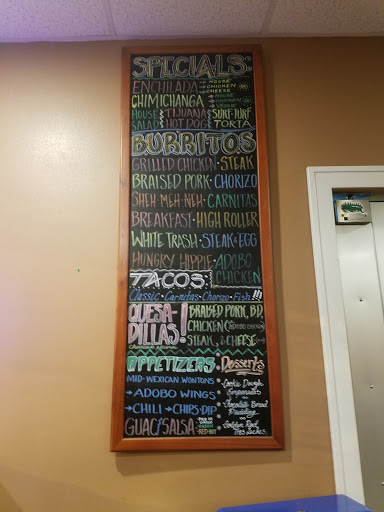 SPECIALS:
ENCHILADA → HOUSE
→ CHICKEN
→ CHEESE
CHIMICHANGA
HOUSE SALAD
TIJUANA HOT DOG
SURF-TURF TORTA
BURRITOS
GRILLED CHICKEN · STEAK
BRAISED PORK · CHORIZO
SHEH MEH NEH · CARNITAS
BREAKFAST · HIGH ROLLER
WHITE TRASH · STEAK & EGG
HUNGRY HIPPIE · ADOBO CHICKEN
TACOS:
Classic · Carnitas · Chorizo · Fish!!!
QUESADILLAS!
BRAISED PORK, B.D.
CHICKEN (ADOBO CHICKEN)
STEAK, & CHEESE
APPETIZERS
MID-WEXICAN WONTONS
→ ADOBO WINGS
→ CHILI → CHIPS·DIP
GUAC/SALSA
RED HOT
Desserts
Cookie Dough Empanadas
Chocolate Bread Pudding
Tres Leches